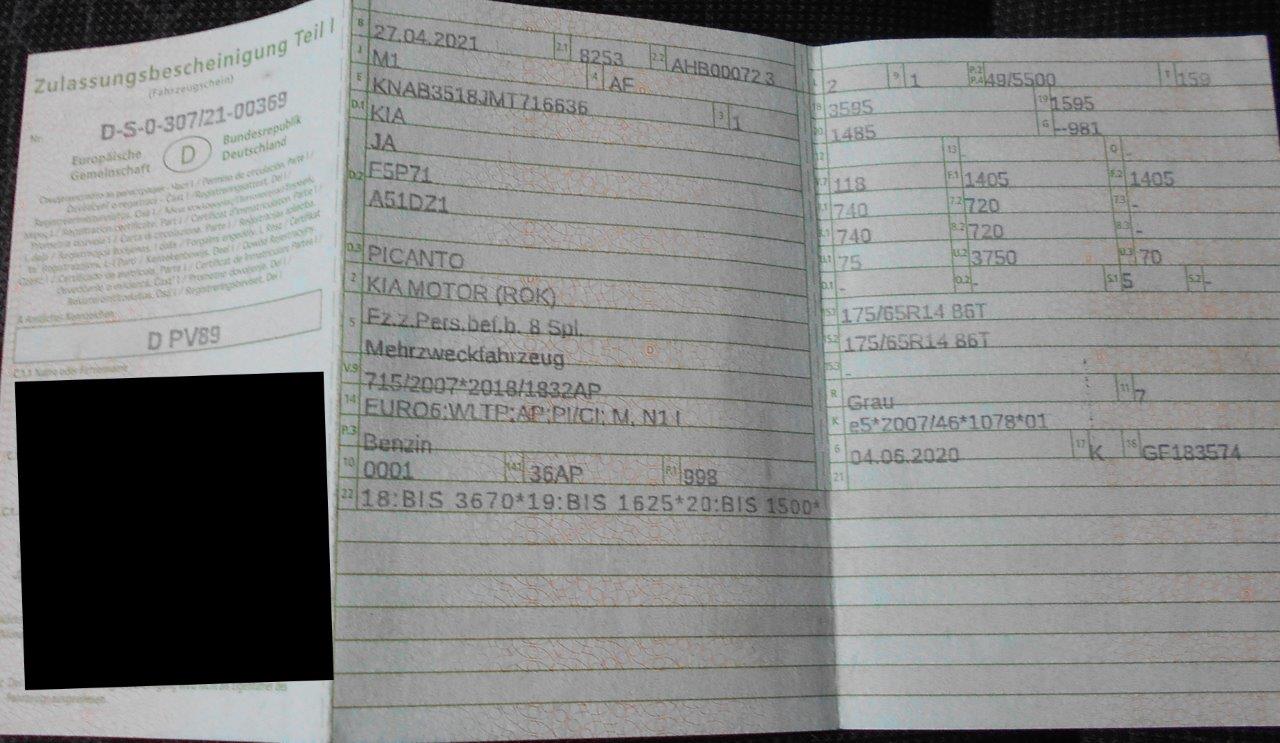 Zulassungsbescheinigung Teil I
(Fahrzeugschein)
Nr. D-S-0-307/21-00369
Europäische Gemeinschaft
D
Bundesrepublik Deutschland
D PV89
C.1.1 Name oder Firmenname
B 27.04.2021 2.1 8253 2.2 AHB00072 3
J M1 4 AF
E KNAB3518JMT716636 3 1
D.1 KIA
JA
D.2 F5P71
A51DZ1
D.3 PICANTO
2 KIA MOTOR (ROK)
5 Fz.z.Pers.bef.b. 8 Spl.
Mehrzweckfahrzeug
V.9 715/2007*2018/1832AP
14 EURO6;WLTP;AP;PI/CI; M, N1 I
P.3 Benzin
10 0001 14.1 36AP P.1 998
22 18:BIS 3670*19:BIS 1625*20:BIS 1500*
L 2 9 1 P.2 P.4 49/5500 T 159
18 3595 19 1595
20 1485 G --981
12 13 Q -
V.7 118 F.1 1405 F.2 1405
7.1 740 7.2 720 7.3 -
8.1 740 8.2 720 8.3 -
U.1 75 U.2 3750 U.3 70
O.1 - O.2 - S.1 5 S.2 -
15.1 175/65R14 86T
15.2 175/65R14 86T
15.3 -
R Grau 11 7
K e5*2007/46*1078*01
6 04.06.2020 17 K 16 GF183574
21